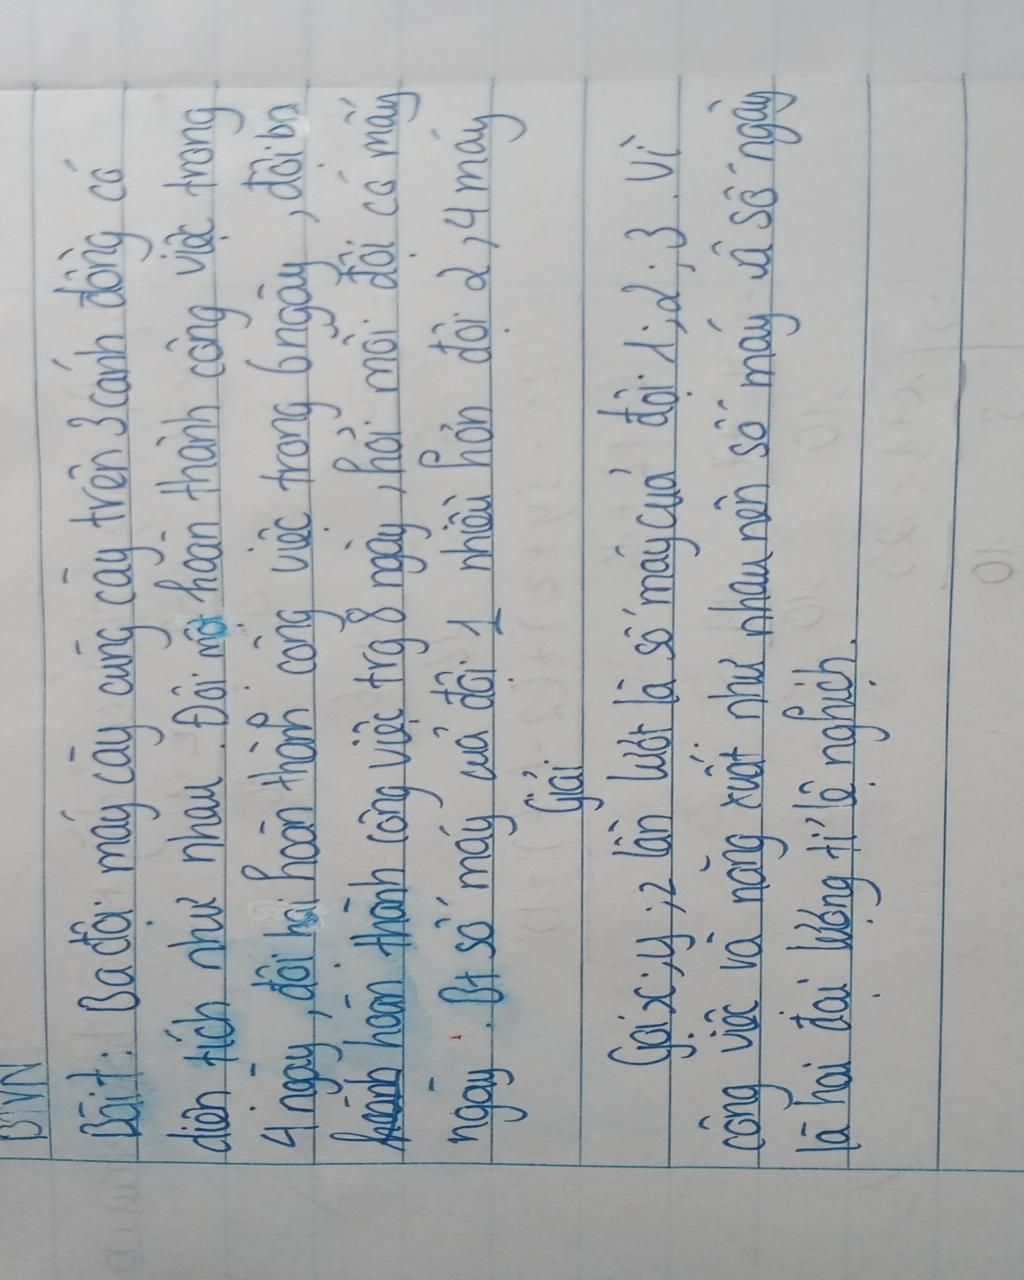 BTVN
Bài 7: Ba đội máy cày cùng cày trên 3 cánh đồng có
diện tích như nhau. Đội một hoàn thành công việc trong
4 ngày, đội hai hoàn thành công việc trong 6 ngày, đội ba
hoàn thành công việc trg 8 ngày, hỏi mỗi đội có mấy máy
ngày. Bt số máy của đội 1 nhiều hơn đội 2, 4 máy
Giải
Gọi x; y; z lần lượt là số máy của đội 1; 2; 3. Vì
công việc và năng xuất như nhau nên số máy và số ngày
là hai đại lượng tỉ lệ nghịch.